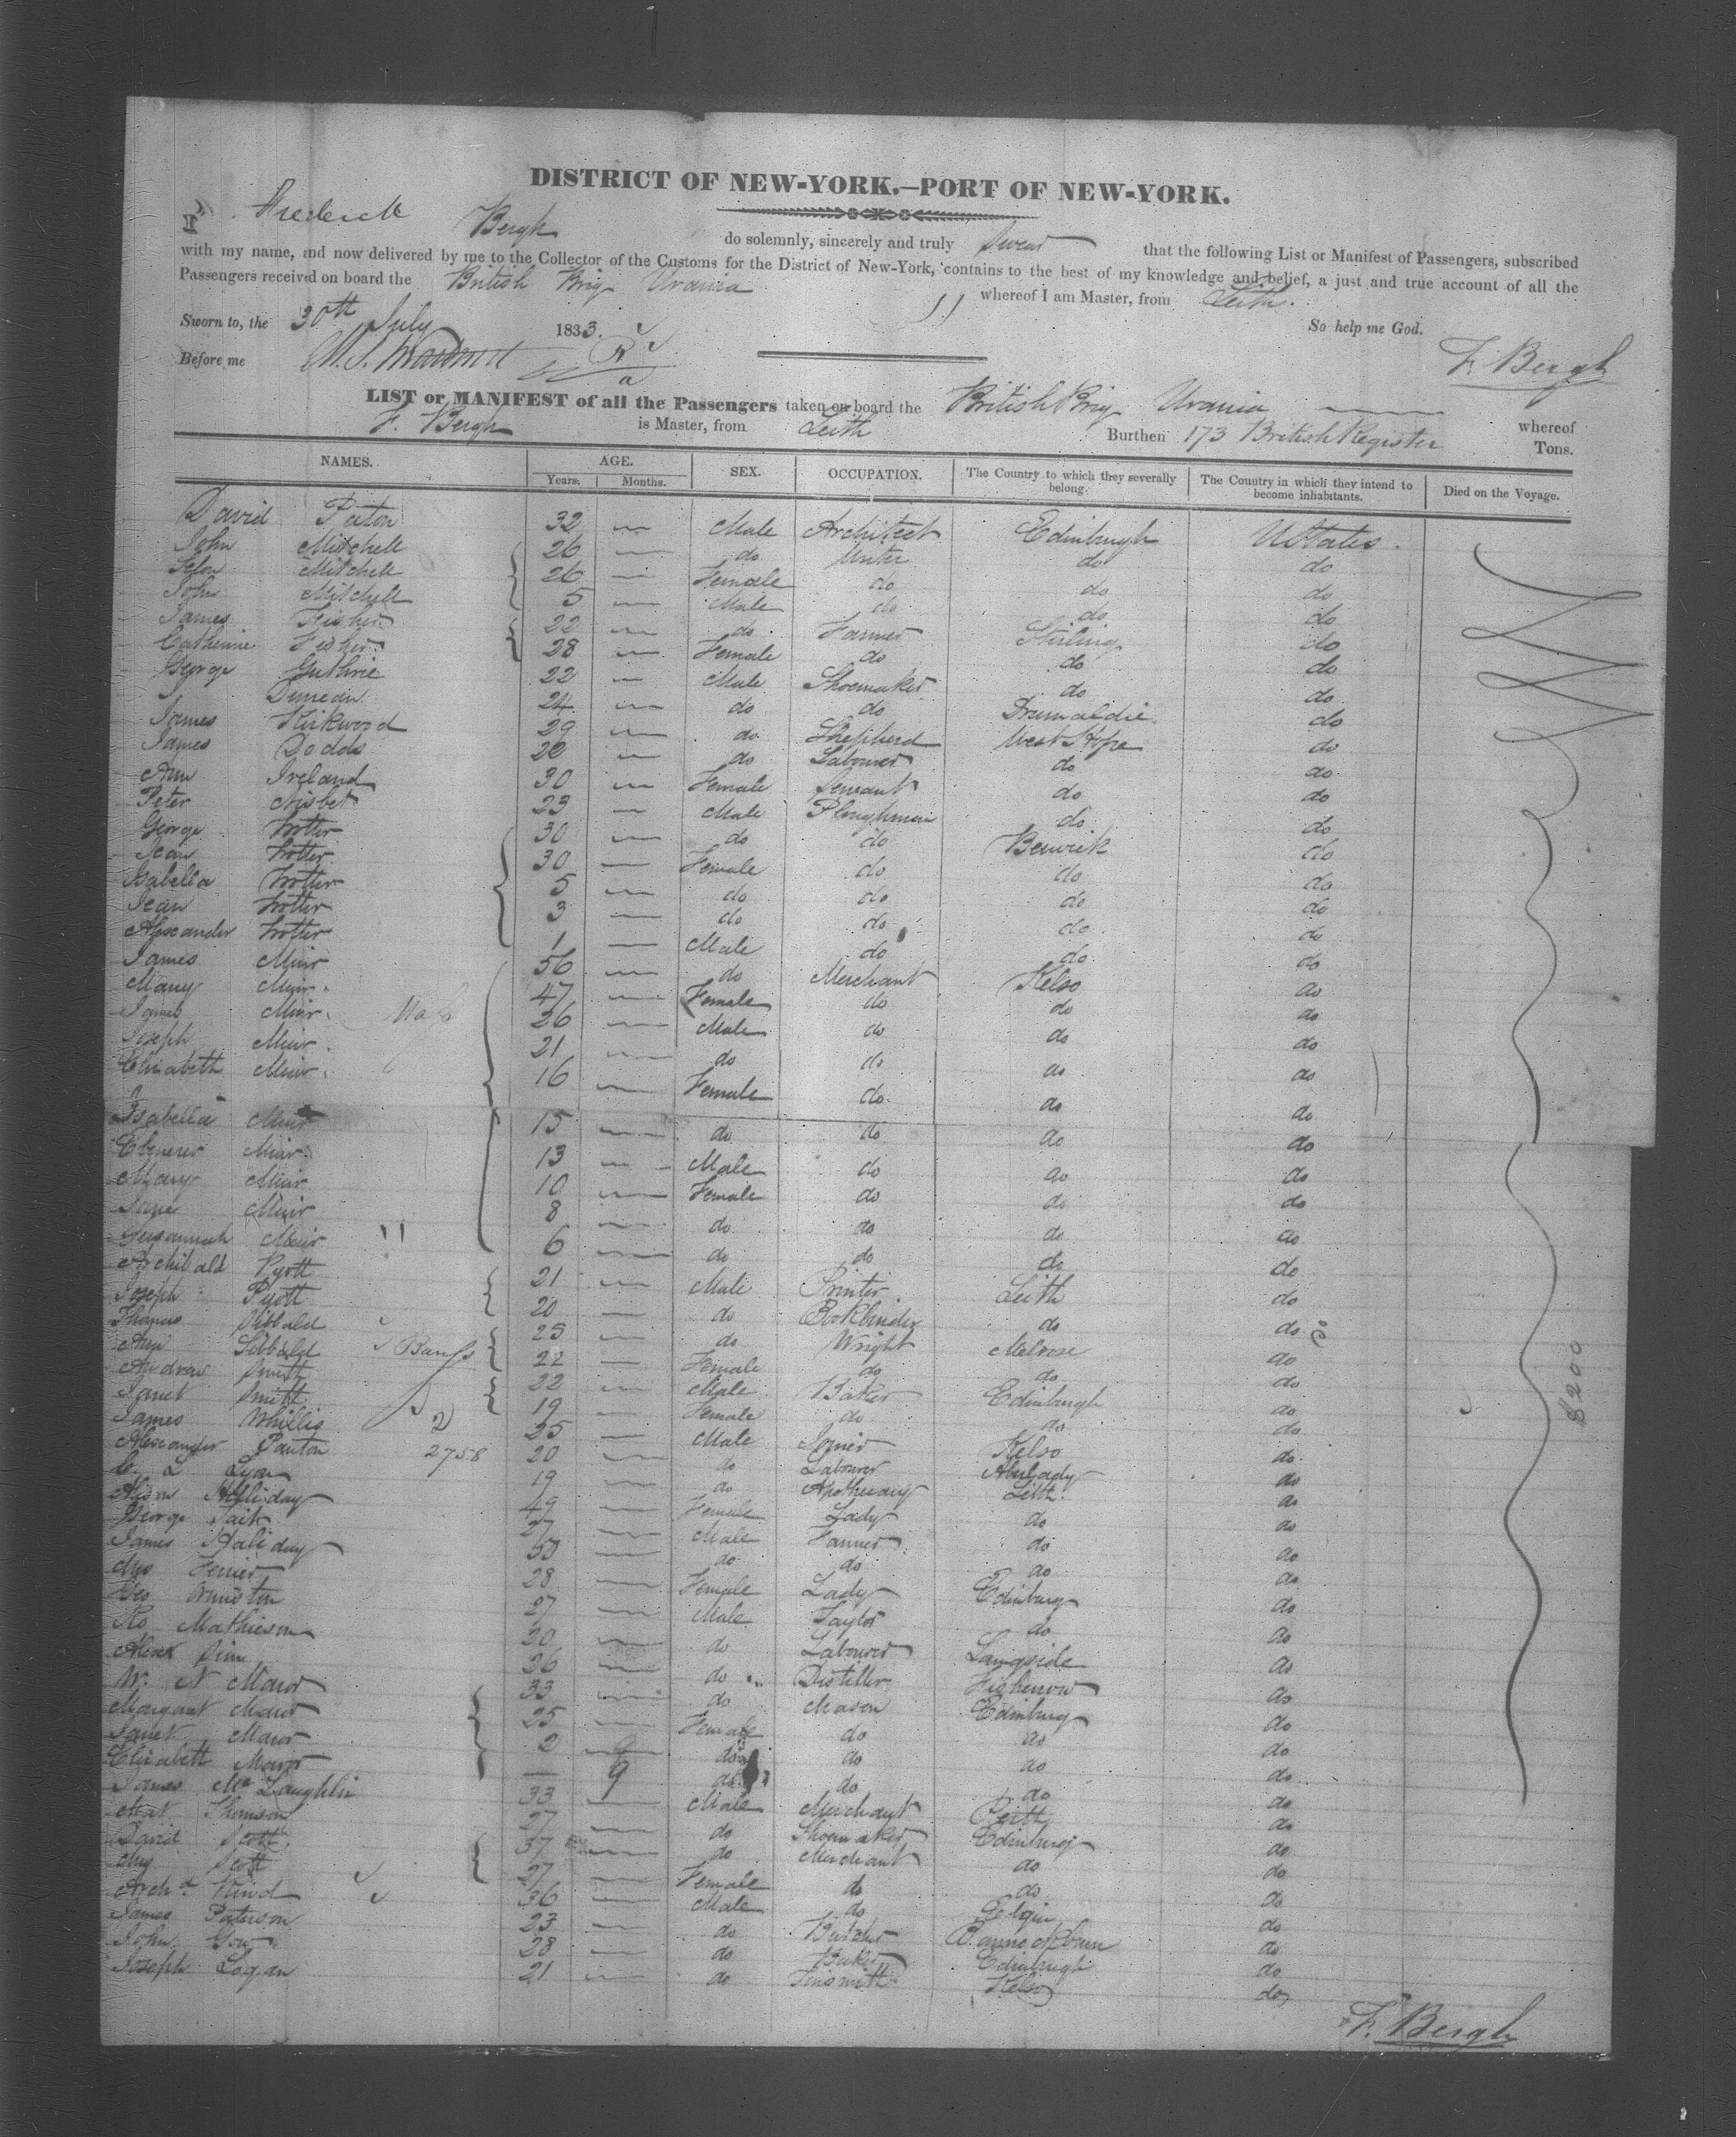 DISTRICT OF NEW-YORK.—PORT OF NEW-YORK.
I Frederick Bergh do solemnly, sincerely and truly Swear that the following List or Manifest of Passengers, subscribed
with my name, and now delivered by me to the Collector of the Customs for the District of New-York, contains to the best of my knowledge and belief, a just and true account of all the
Passengers received on board the British Brig Urania whereof I am Master, from Leith.
Sworn to, the 30th July 1833. So help me God.
Before me F. Bergh
LIST or MANIFEST of all the Passengers taken on board the British Brig Urania whereof
F. Bergh is Master, from Leith Burthen 173 British Register Tons.
NAMES. AGE. SEX. OCCUPATION. The Country to which they severally belong. The Country in which they intend to become inhabitants. Died on the Voyage.
Years. Months.
David Paton 32 Male Architect Edinburgh UStates.
John Mitchell 26 do do do
Mitchell 26 Female do do do
John Mitchell 5 Male do do do
James Fisher 22 do Farmer Stirling do
Catherine Fisher 28 Female do do do
George Guthrie 22 Male Shoemaker do do
Duncan 24 do do do
James Kirkwood 29 do Shepherd West Hope do
James Dodds 20 do Labourer do do
Ann Ireland 30 Female Servant do do
Peter Nisbet 23 Male Ploughman do do
George Trotter 30 do do Berwick do
Jean Trotter 30 Female do do do
Isabella Trotter 5 do do do do
Jean Trotter 3 do do do do
Alexander Trotter 1 Male do do do
James Muir 56 do Merchant Kelso do
Mary Muir 47 Female do do do
James Muir 26 Male do do do
Joseph Muir 21 do do do do
Elizabeth Muir 16 Female do do do
Isabella Muir 15 do do do do
Ebenezer Muir 13 Male do do do
Mary Muir 10 Female do do do
Jane Muir 8 do do do do
Susannah Muir 6 do do do do
Archibald Pyott 21 Male Printer Leith do
Joseph Pyott 20 do Bookbinder do do
Thomas Sibbald 25 do Wright Melrose do
Ann Sibbald 22 Female do do do
Andrew Smith 22 Male Baker Edinburgh do
Janet Smith 19 Female do do do
James Whillis 25 Male Joiner Kelso do
Alexander Panton 2758 20 do Labourer Aberlady do
C. L. Lyon 19 do Apothecary Leith do
Alison Halliday 49 Female Lady do do
George Tait 27 Male Farmer do do
James Haliday 53 do do do do
Mrs Ferrier 28 Female Lady Edinburg do
Geo Ormiston 27 Male Taylor do do
Ro Mathieson 20 do Labourer Langside do
Alexr Sim 26 do Distiller Fisherrow do
W. N Maror 33 do Mason Edinburg do
Margaret Maror 25 Female do do do
Janet Maror 2 do do do do
Elizabeth Maror 9 do do do do
James McLaughlin 33 Male Merchant Perth do
Mat Thomson 27 do Shoemaker Edinburg do
David Scott 37 do Merchant do do
Mrs Scott 27 Female do do do
Archd Hind 36 Male do Elgin do
James Paterson 23 do Butcher Bannockburn do
John Gow 28 do Baker Edinburgh do
Joseph Logan 21 do Tinsmith Kelso do
$200
F. Bergh